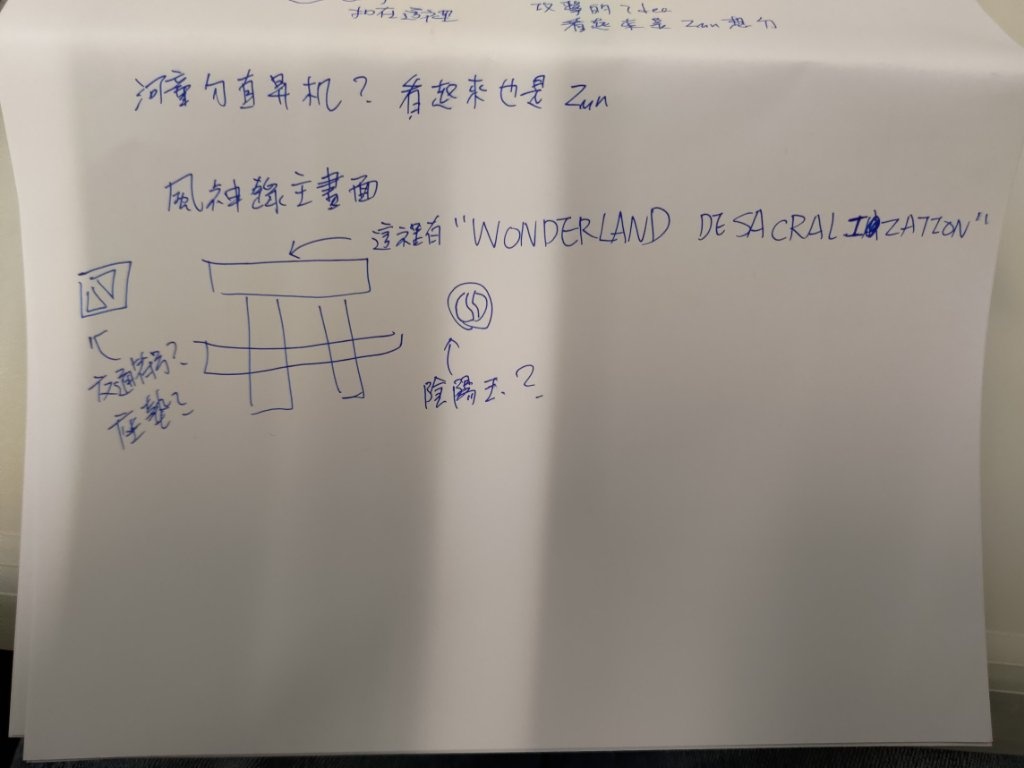 扣在這裡
攻擊的 Idea
看起來是 Zun 想的
河童的直昇机? 看起來也是 Zun
風神錄主畫面
這裡有 "WONDERLAND DESACRALIZATION"
交通符号?
座墊?
陰陽玉?